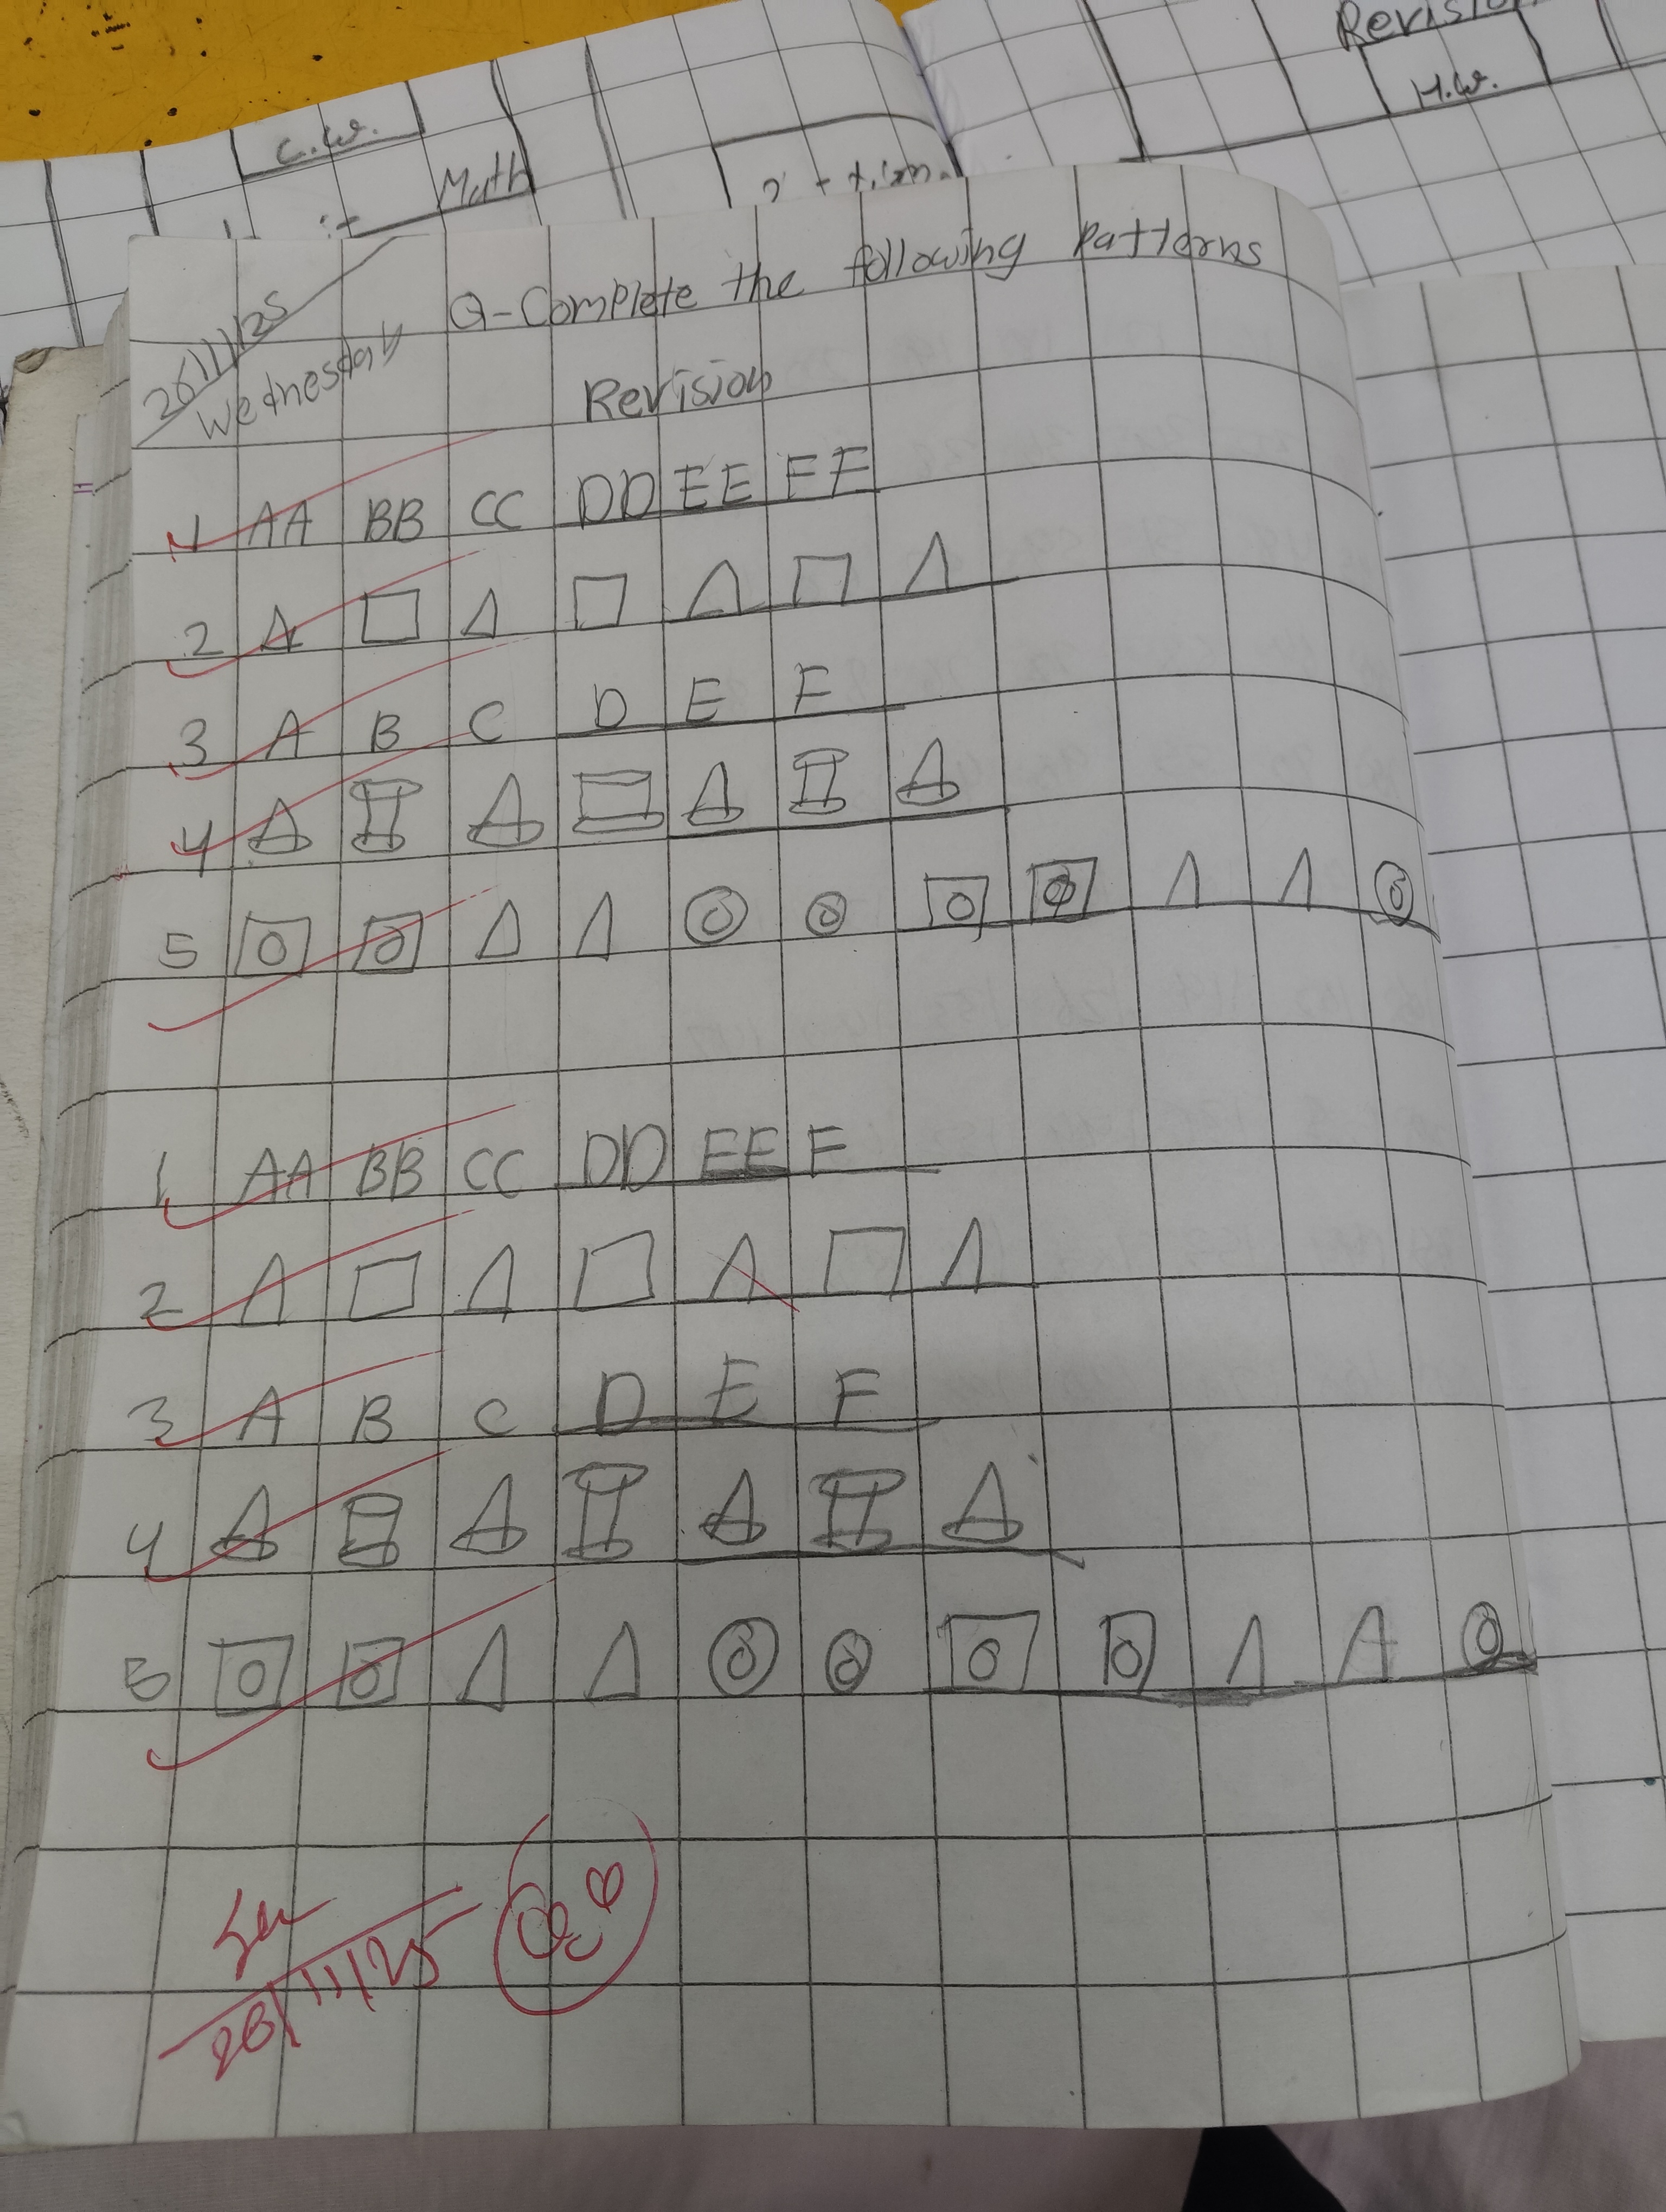 Revision
H.W.
C.W.
Math
26/11/25
Wednesday
Q-Complete the following Patterns
Revision
1 AA BB CC DD EE FF
2
3 A B C D E F
4
5
1 AA BB CC DD EE F
2
3 A B C D E F
4
5
26/11/25